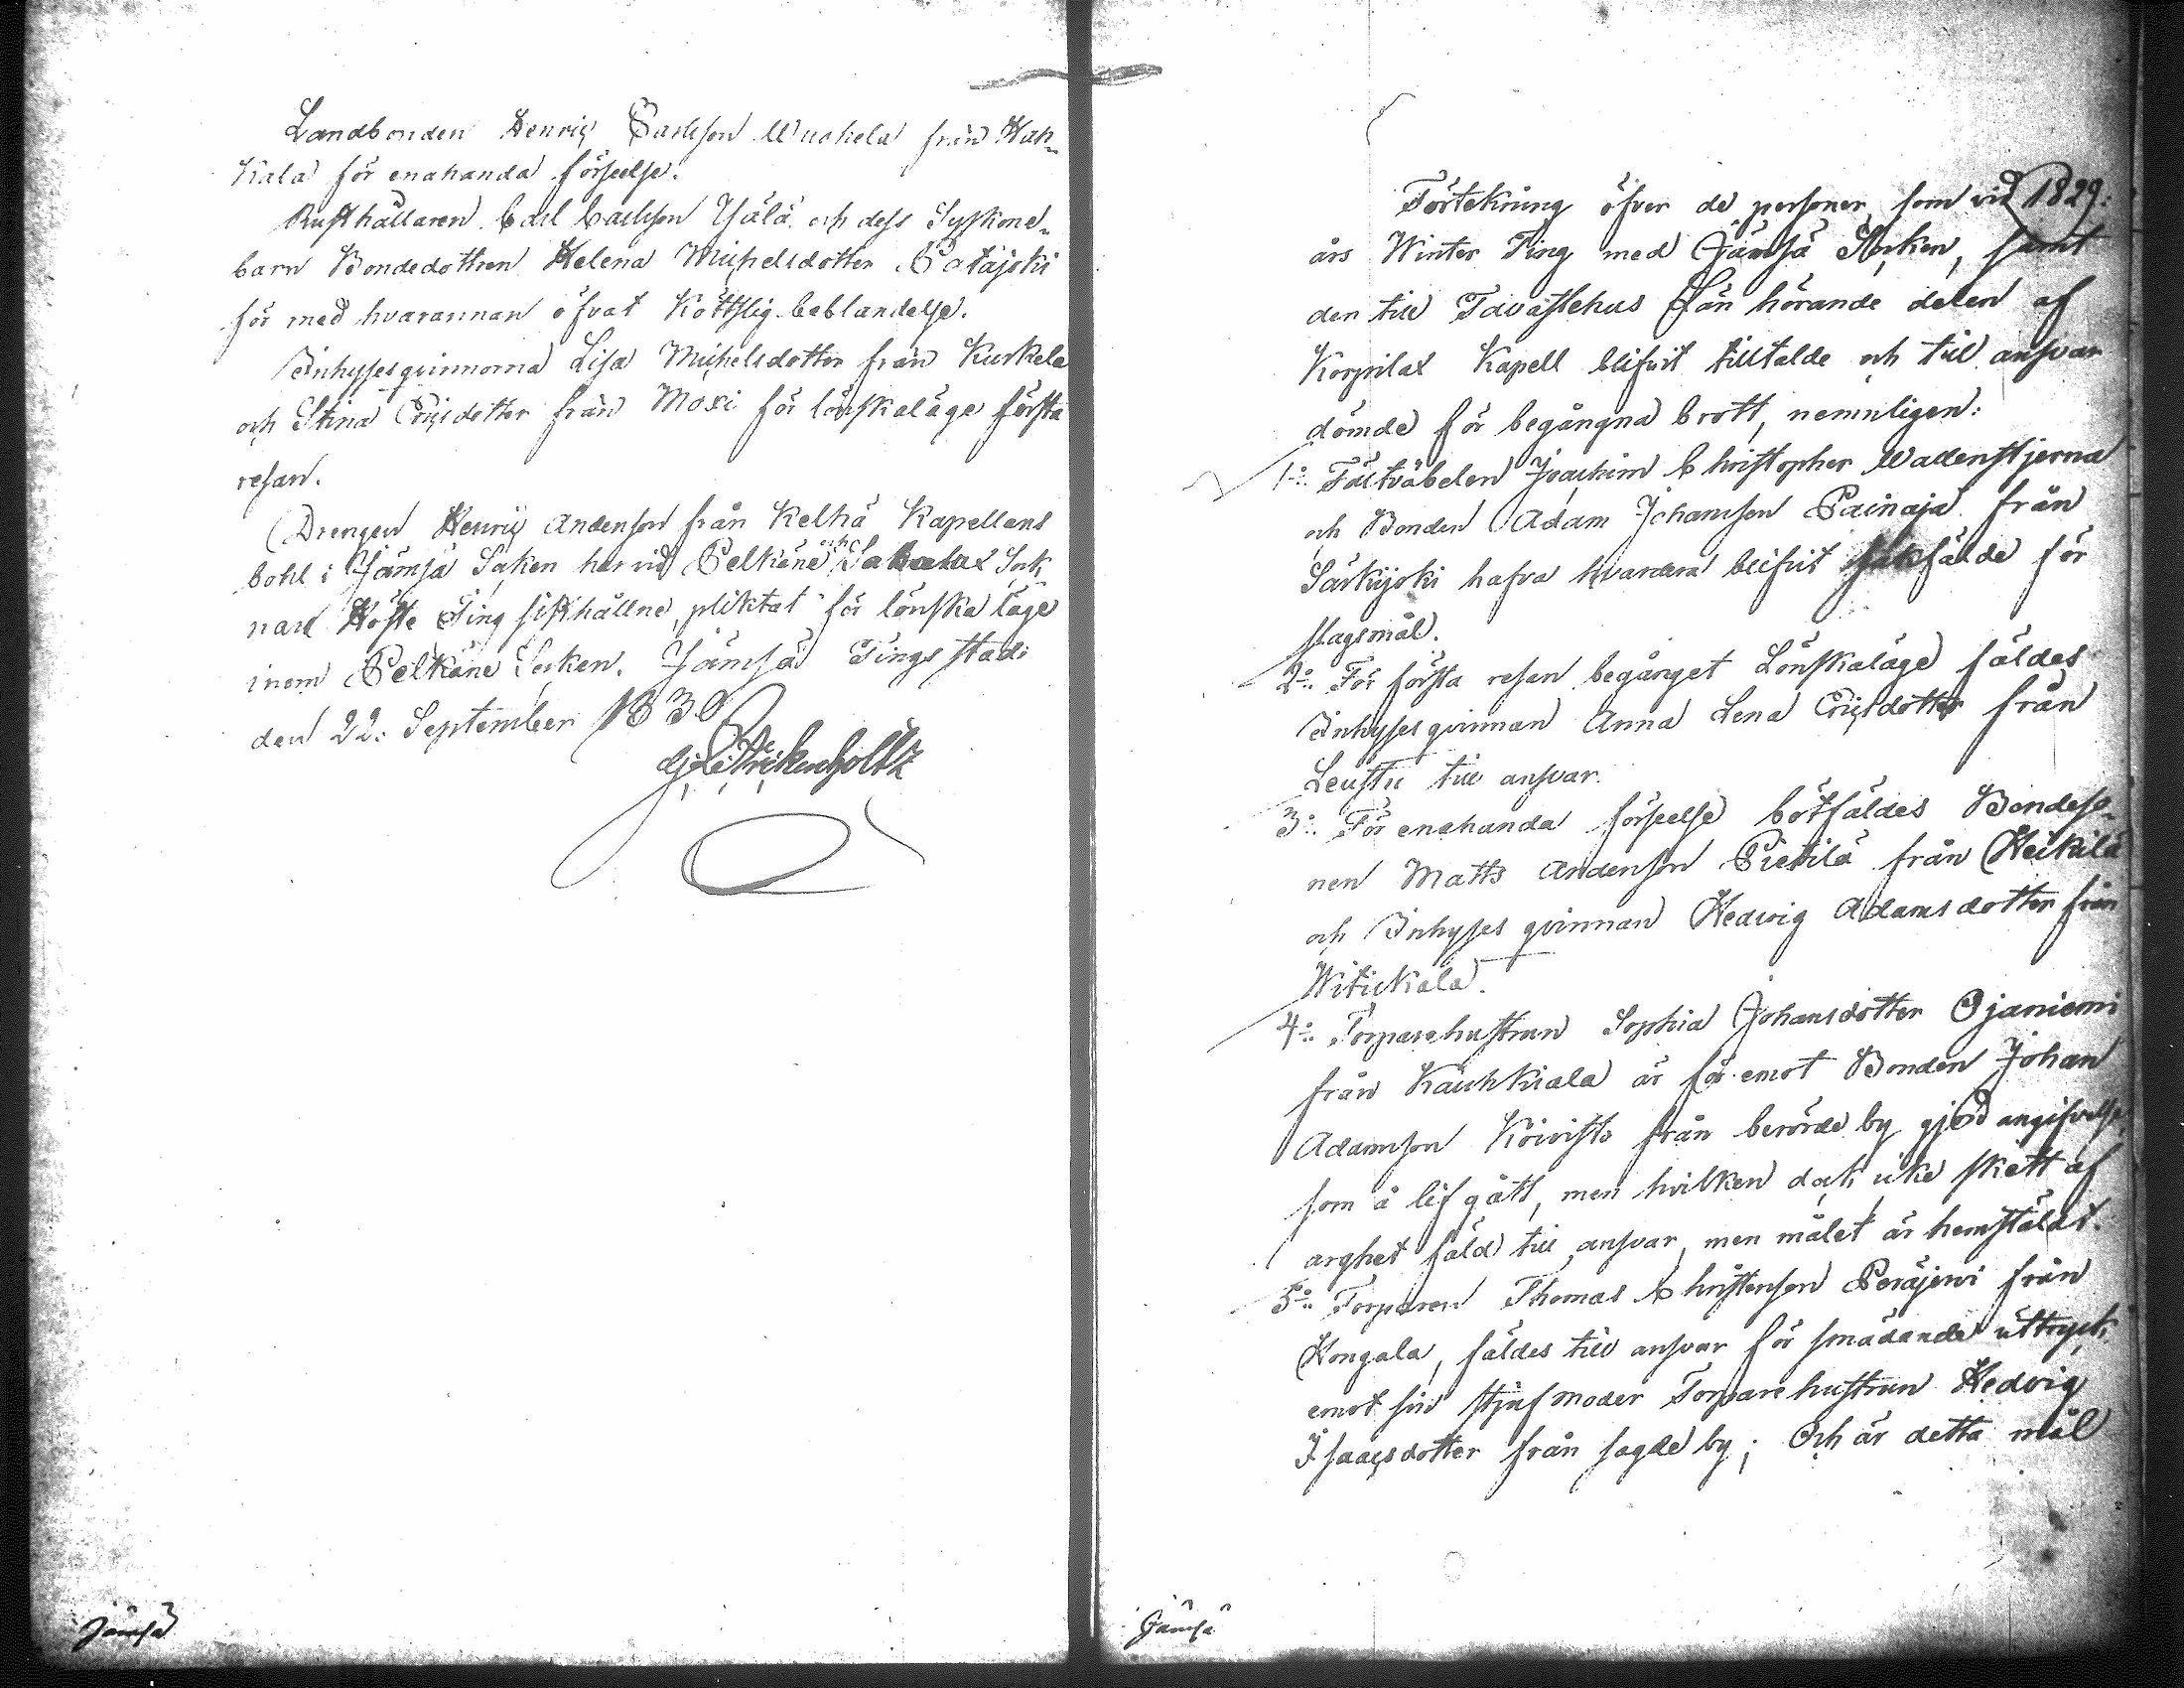 Landbonden Henric Carlsson Uuckela från Hak-
kala för enahanda förseelse.
Rusthållaren Carl Carlsson Yälä och dess Syskone-
barn Bondedottren Helena Michelsdotter Patajoki
för med hvarannan öfvat Köttslig beblandelse.
Inhysesqvinnorna Lisa Michelsdotter från Kuckela
och Stina Ericsdotter från Moxi för lönskaläge första
resan.
Drengen Henric Andersson från Kelhä Kapellans
bohl i Jämsä Socken har vid Pelkäne och Sahalax Sock
nars Höste Ting sisthållne, pliktat för lönska läge
inom Pelkäne Socken. Jämsä Tingsstad
den 22: September 1830
Jämsä
Förtekning öfver de personer, som vid 1829:
års Winter Ting med Jämsä Socken, samt
den till Tavastehus Län hörande delen af
Korpilax Kapell blifvit tilltalde och till ansvar
dömde för begångna brott, nemnligen:
1o: Fältväbelen Joachim Christopher Wadenstjerna
och Bonden Adam Johansson Painaja från
Särkijoki hafva hvardera blifvit sakfälde för
slagsmål.
2o: För första resan begånget Lönskaläge fäldes
Inhyses qvinnan Anna Lena Ericsdotter från
Leustu till ansvar.
3o: För enahanda förseelse bötfäldes Bondeso-
nen Matts Andersson Pietilä från Heikilä
och Inhyses qvinnan Hedvig Adamsdotter från
Witickala.
4o: Torparehustrun Sophia Johansdotter Ojaniemi
från Kauhkiala är för emot Bonden Johan
Adamsson Koivisto från berörde by gjord angifvelse
som å lif gått, men hvilken dock icke skett af
arghet fäld till ansvar, men målet är hemstäldt.
5o: Torparen Thomas Christersson Peräjervi från
Hongala, fäldes till ansvar för smädande uttryck
emot sin stjufmoder Torpare hustrun Hedvig
Isaacsdotter från sagde by; Och är detta mål
Jämsä